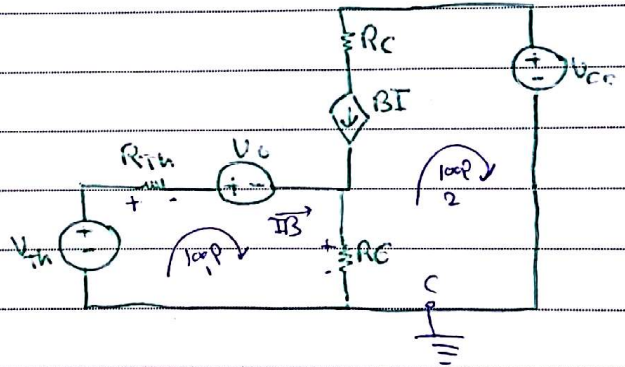 RC
+
-
VCC
BI
RTh
V0
+ -
+ -
IB
loop 2
+
-
VTh
loop 1
+
-
RE
C